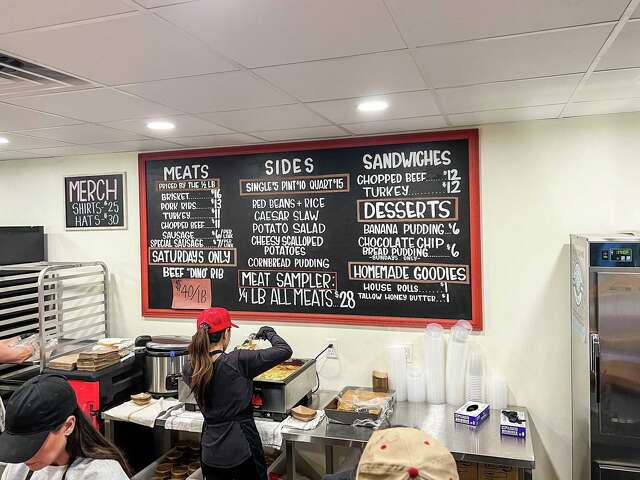 MERCH
SHIRTS-$25
HATS-$30
MEATS
PRICED BY THE ½ LB
BRISKET......$16
PORK RIBS....$13
TURKEY.......$11
CHOPPED BEEF..$11
SAUSAGE $6/PER LINK
SPECIAL SAUSAGE $7/PER LINK
SATURDAYS ONLY
BEEF "DINO" RIB
$40/LB
SIDES
SINGLE $5 PINT $10 QUART $15
RED BEANS + RICE
CAESAR SLAW
POTATO SALAD
CHEESY SCALLOPED
POTATOES
CORNBREAD PUDDING
MEAT SAMPLER:
¼ LB ALL MEATS. $28
SANDWICHES
CHOPPED BEEF...$12
TURKEY.........$12
DESSERTS
BANANA PUDDING.$6
CHOCOLATE CHIP
BREAD PUDDING...$6
-SUNDAYS ONLY-
HOMEMADE GOODIES
HOUSE ROLLS......$1
TALLOW HONEY BUTTER...$1